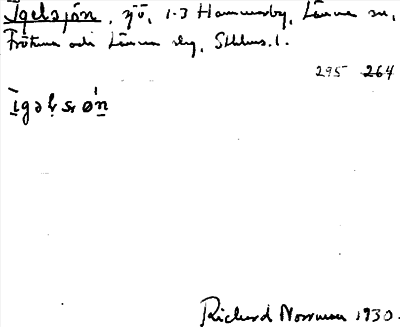 Igelsjön, sjö, 1-3 Hammarby, Länna sn,
Frötuna och Länna slg, Sthlms. l.
295 264
Richard Norrman 1930.